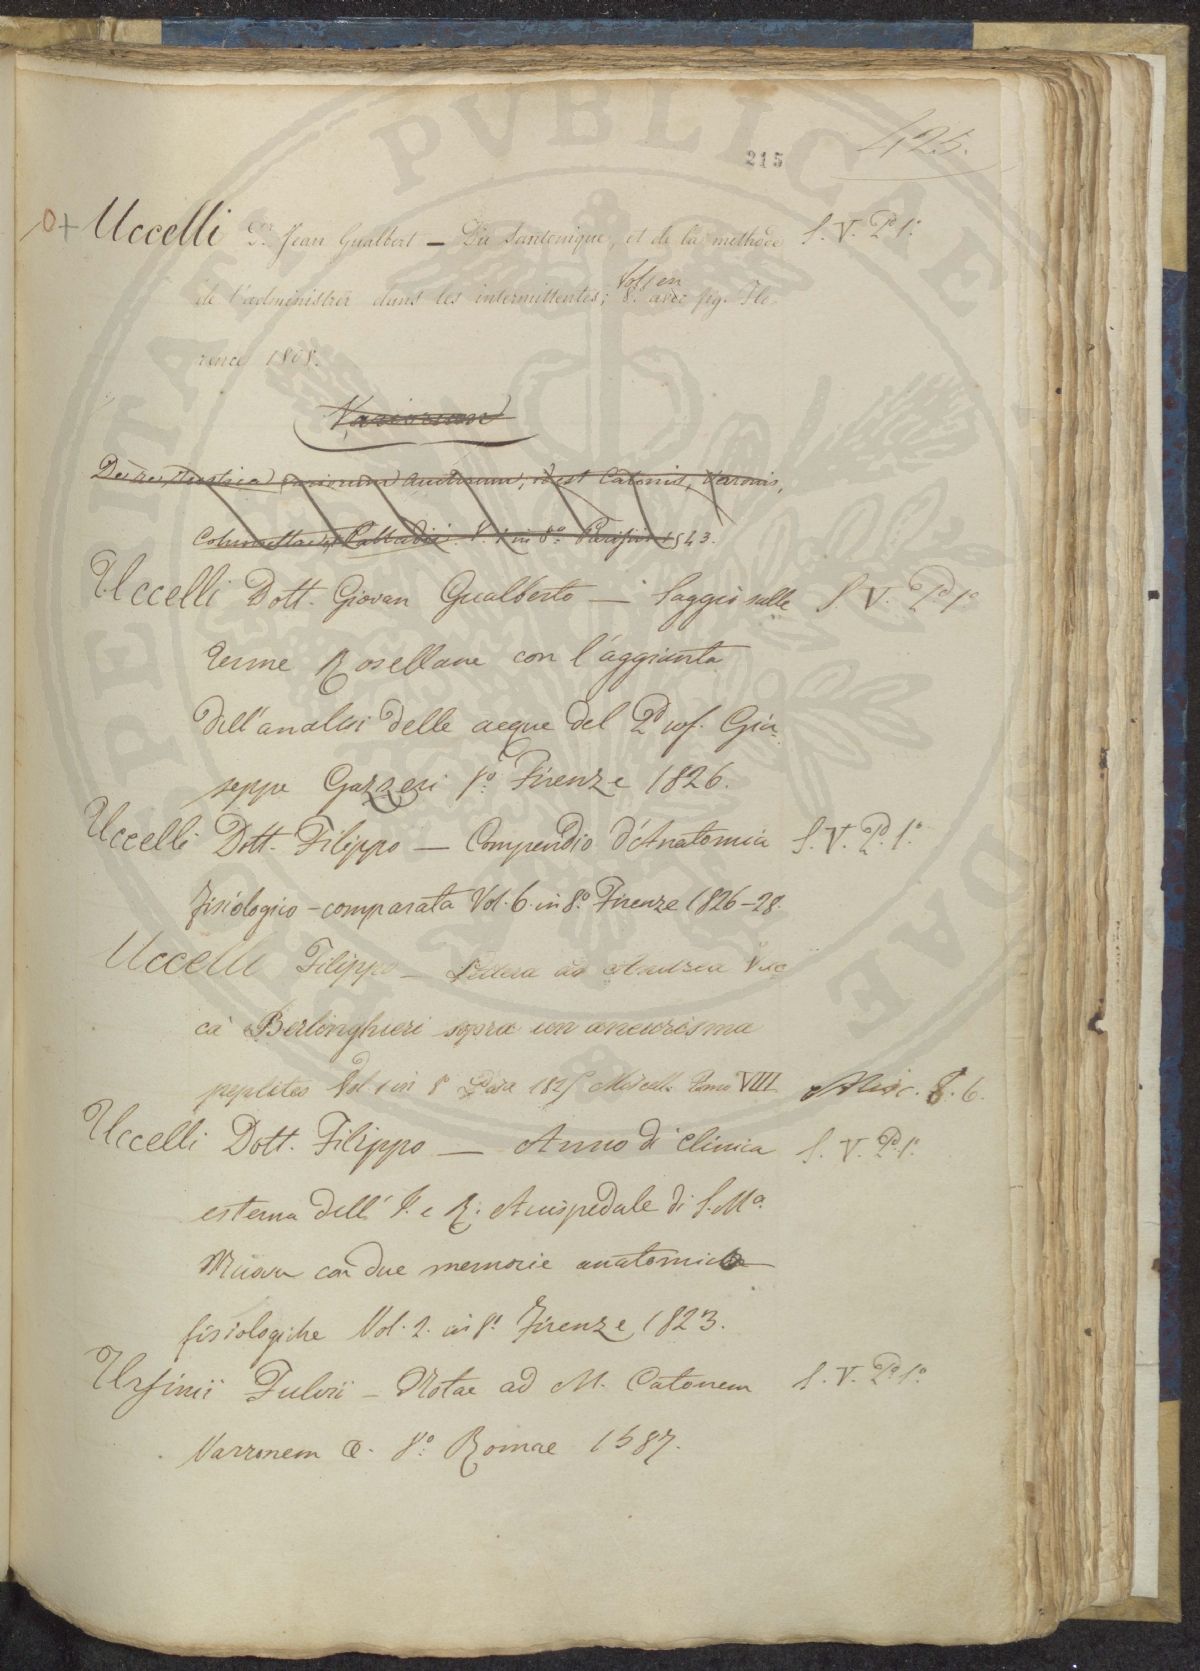 215
425.
Uccelli D.r Jean Gualbert — Du Santonique, et de la méthode S. V. P.o 1.o
de l'administrer dans les intermittentes; Vol. 1 en 8.o avec fig. Flo-
rence 1808.
Variorum
De re rustica variorum auctorum, idest Catonis, Varronis,
Columellae et Palladii. V. 1 in 8.o Parisiis 1543.
Uccelli Dott. Giovan Gualberto — Saggio sulle S. V. P.o 1.o
Terme Rosellane con l'aggiunta
dell'analisi delle acque del Prof. Giu-
seppe Gazzeri 8.o Firenze 1826.
Uccelli Dott. Filippo — Compendio d'Anatomia S. V. P.o 1.o
fisiologico-comparata Vol. 6. in 8.o Firenze 1826-28.
Uccelli Filippo — Lettera ad Andrea Vac
cà Berlinghieri sopra un aneurisma
popliteo Vol 1 in 8.o Pisa Miscell. Tomo VIII. Misc. 8. 6.
Uccelli Dott. Filippo — Anno di clinica S. V. P.o 1.o
esterna dell'I. e R. Arcispedale di S. M.a
Nuova con due memorie anatomico
fisiologiche Vol. 2. in 8.o Firenze 1823.
Ursinii Fulvii — Notae ad M. Catonem S. V. P.o 1.o
Varronem &. 8.o Romae 1587.